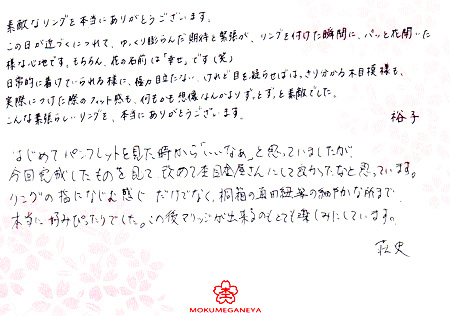 素敵なリングを本当にありがとうございます。
この日が近づくにつれて、ゆっくり膨らんだ期待と緊張が、リングを付けた瞬間に、パッと花開いた
様な心地です。もちろん、花の名前は「幸せ」です(笑)
日常的に着けていられる様に、極力目立たない、けれど目を凝らせばはっきり分かる木目模様も、
実際につけた際のフィット感も、何もかも想像なんかよりずっとずっと素敵でした。
こんな素晴らしいリングを、本当にありがとうございます。
裕子
はじめてパンフレットを見た時から「いいなぁ」と思っていましたが、
今回完成したものを見て改めて杢目金屋さんにして良かったなと思っています。
リングの指になじむ感じだけでなく、桐箱の真田紐の細やかな所まで
本当に好みぴったりでした。この後マリッジが出来るのもとても楽しみにしています。
MOKUMEGANEYA